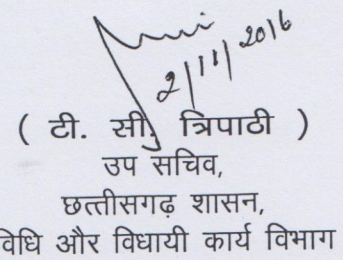 2/11/2016
( टी. सी. त्रिपाठी )
उप सचिव,
छत्तीसगढ़ शासन,
विधि और विधायी कार्य विभाग